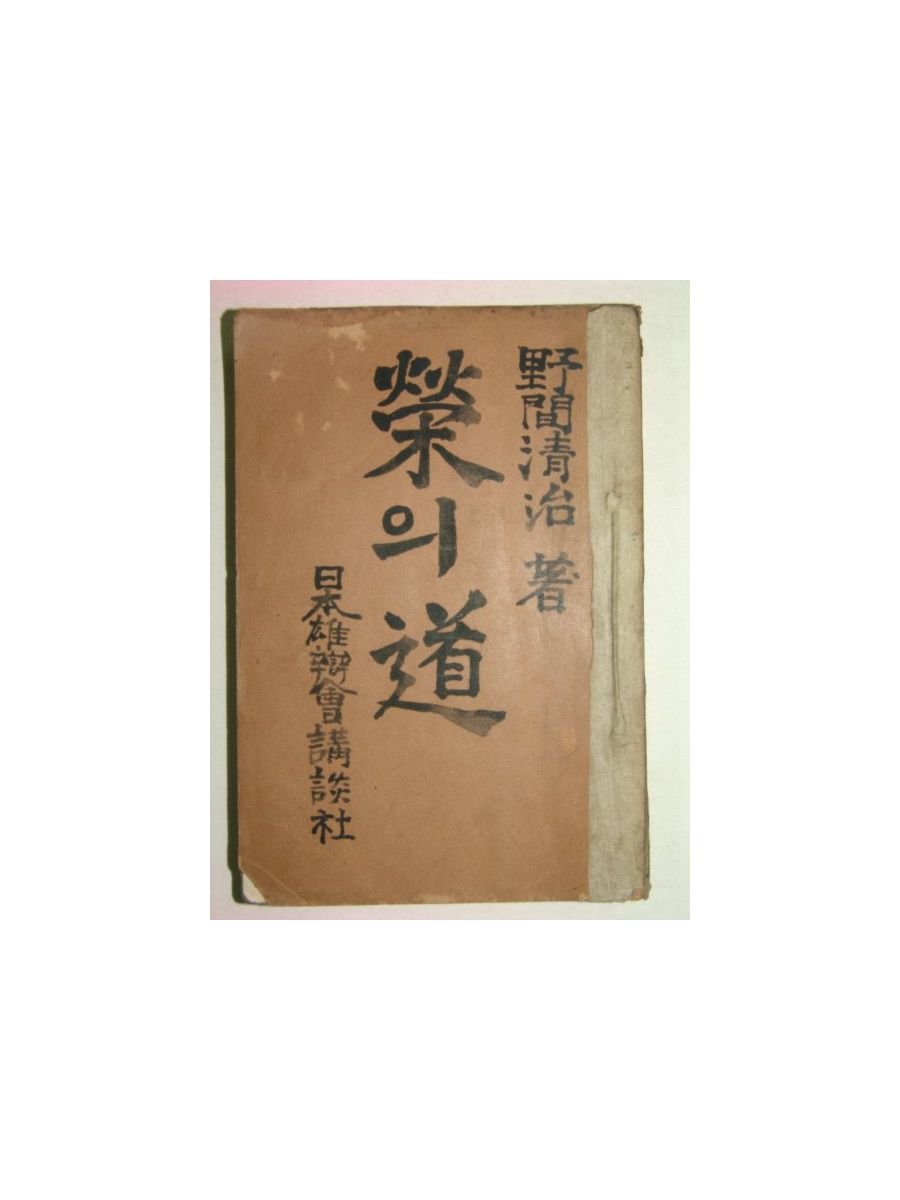 野間清治 著
榮의 道
日本雄辯會講談社